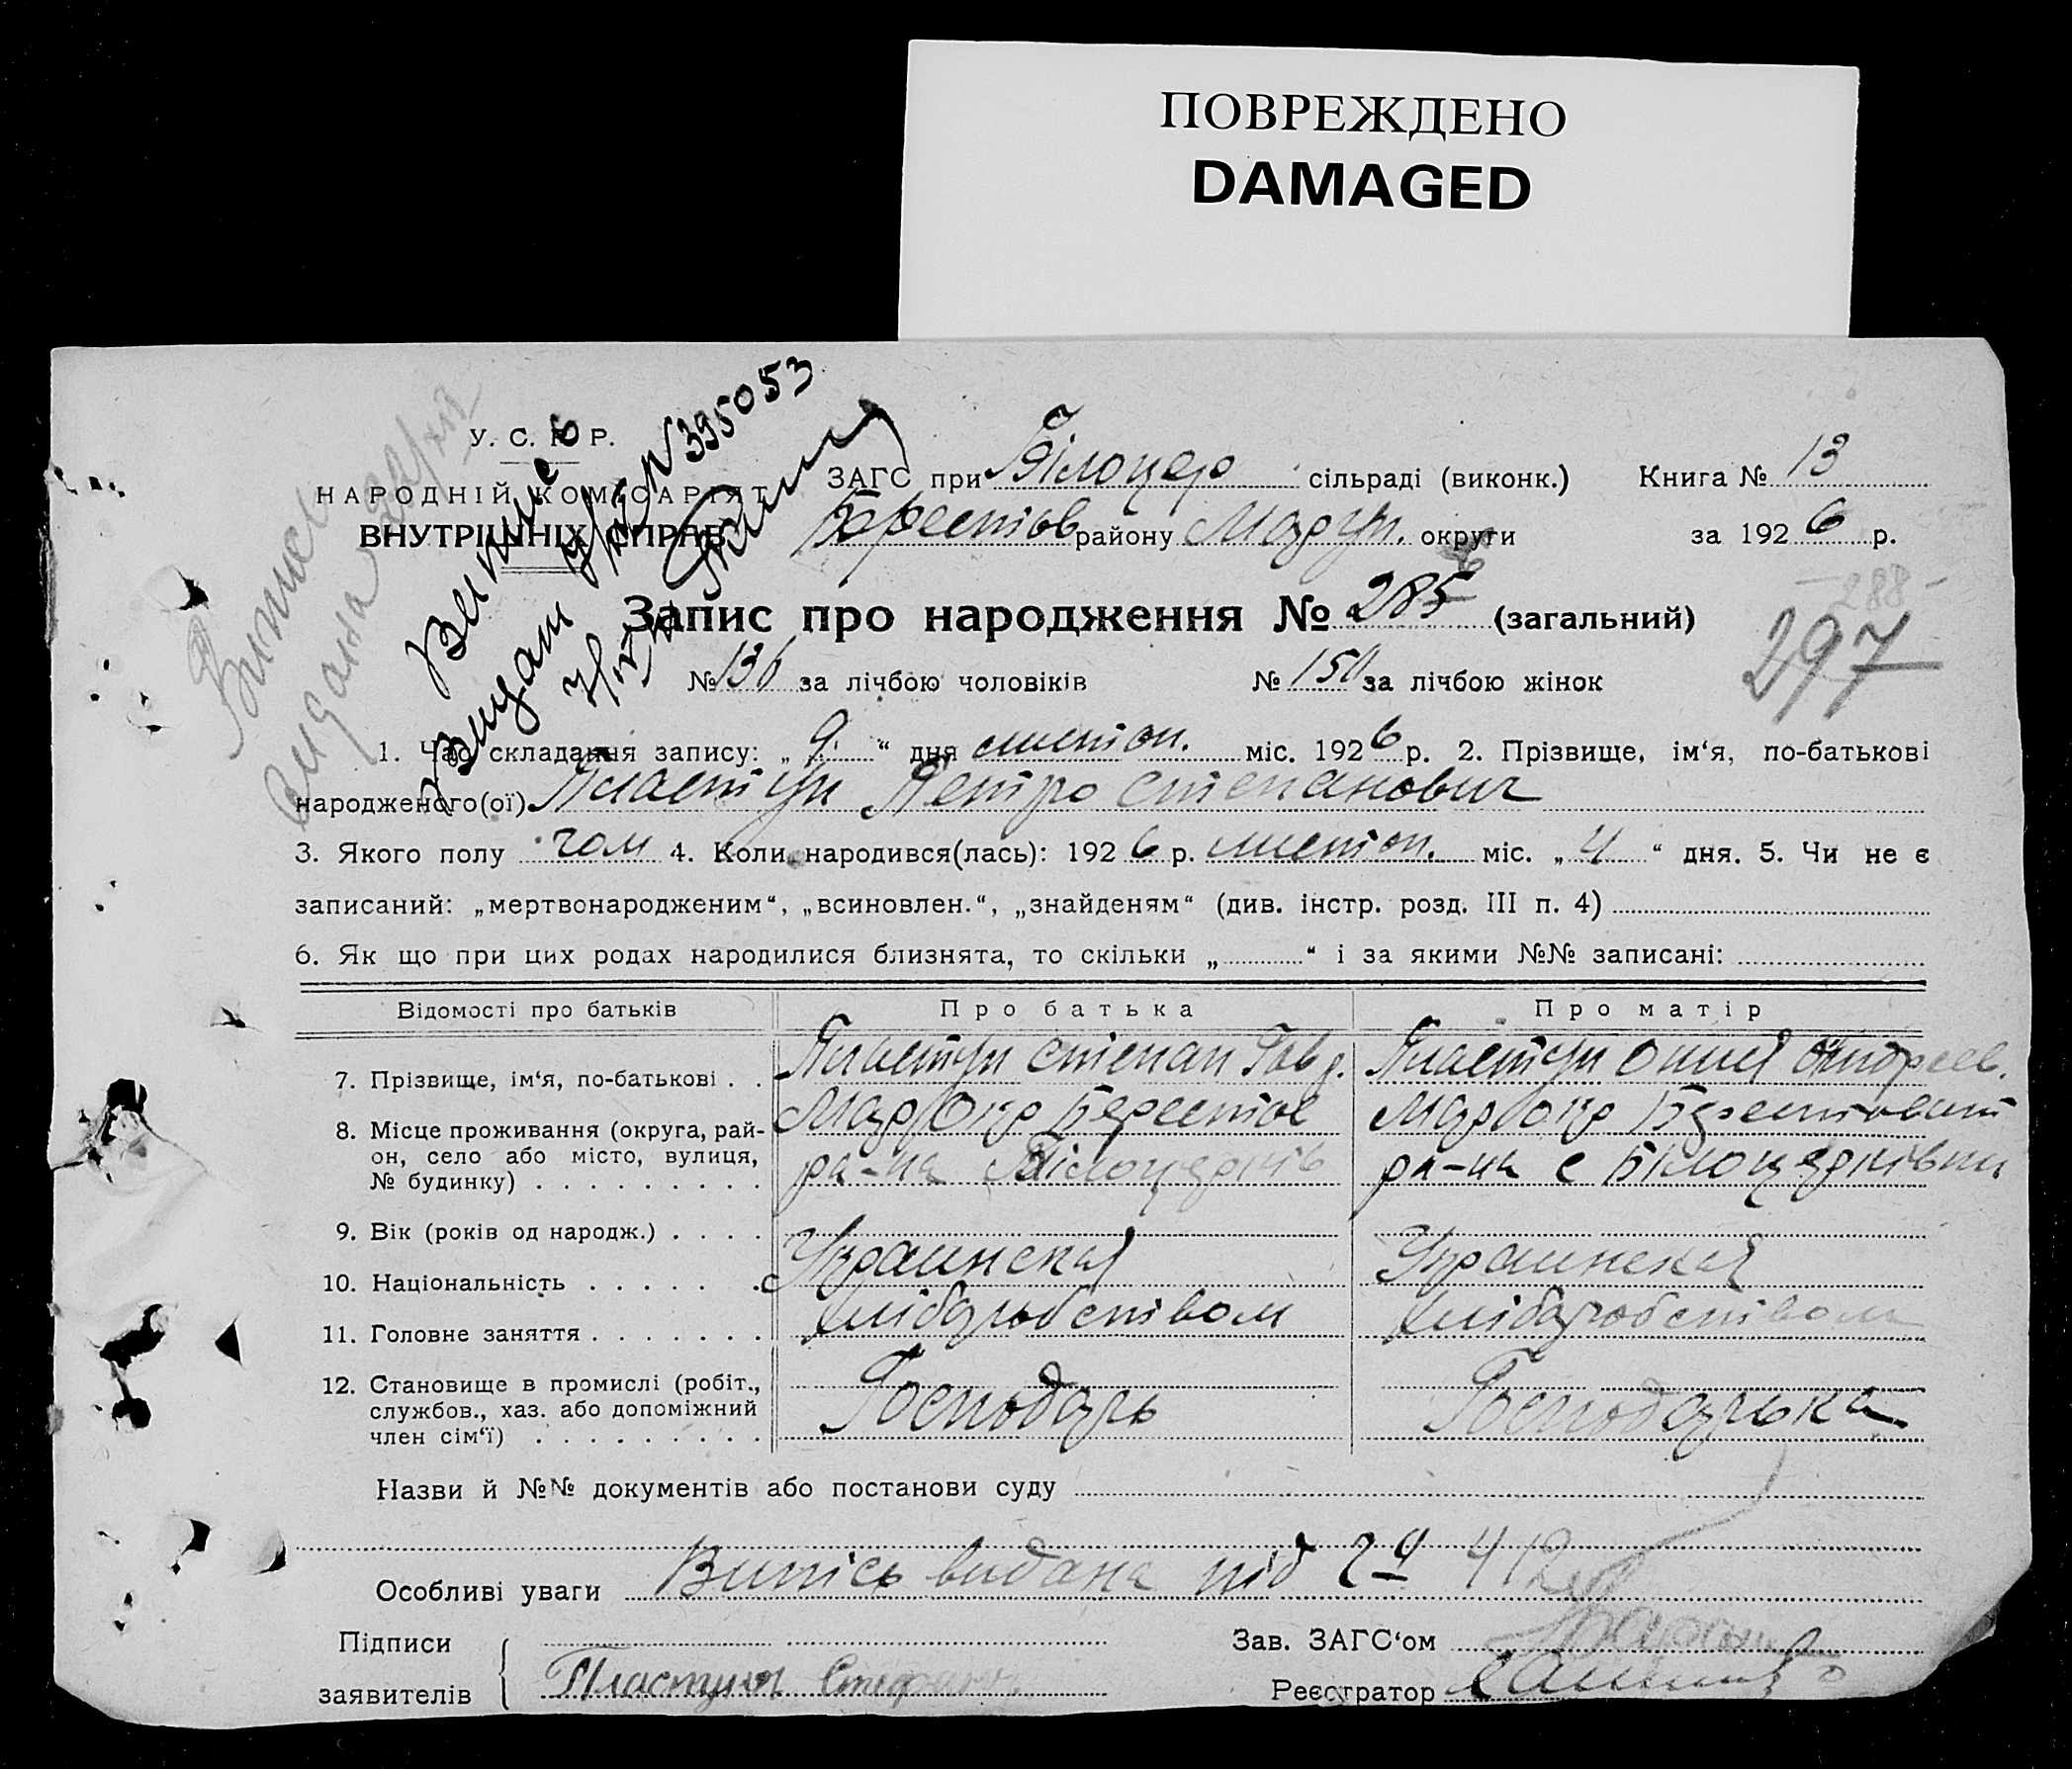 ПОВРЕЖДЕНО
DAMAGED
У. С. Р. Р.
НАРОДНІЙ КОМІСАРІЯТ
ВНУТРІШНІХ СПРАВ
Випись
видана
N 395053
ЗАГС при Білоцер сільраді (виконк.) Книга № 13
Берестов району Маріуп. округи за 1926 р.
Запис про народження № 285 6 (загальний)
-288-
297
№ 136 за лічбою чоловіків № 150 за лічбою жінок
1. Час складання запису: „ 9 “ дня листоп. міс. 1926 р. 2. Прізвище, ім‘я, по-батькові
народженого(ої) Пластун Петро Степанович
3. Якого полу чол 4. Коли народився(лась): 1926 р. листоп. міс. „ 4 “ дня. 5. Чи не є
записаний: „мертвонародженим“, „всиновлен.“, „знайденям“ (див. інстр. розд. III п. 4)
6. Як що при цих родах народилися близнята, то скільки „ “ і за якими №№ записані:
Відомості про батьків Про батька Про матір
7. Прізвище, ім‘я, по-батькові . . Пластун Степан Гавр. Пластун Андреев.
8. Місце проживання (округа, рай- Мар Окр Берестов Мар Окр Берестовит
он, село або місто, вулиця, ра-на Білоцерків ра-на с Білоцерківки
№ будинку) . . . . . . . . .
9. Вік (років од народж.) . . . .
10. Національність . . . . . . . Украинская Украинская
11. Головне заняття . . . . . . . хлібаробством хлібаробством
12. Становище в промислі (робіт.,
службов., хаз. або допоміжний Господарь Господарька
член сім‘ї) . . . . . . . . .
Назви й №№ документів або постанови суду
Особливі уваги Випісь видана під 412
Підписи Зав. ЗАГС‘ом
заявителів Пластун Реєстратор